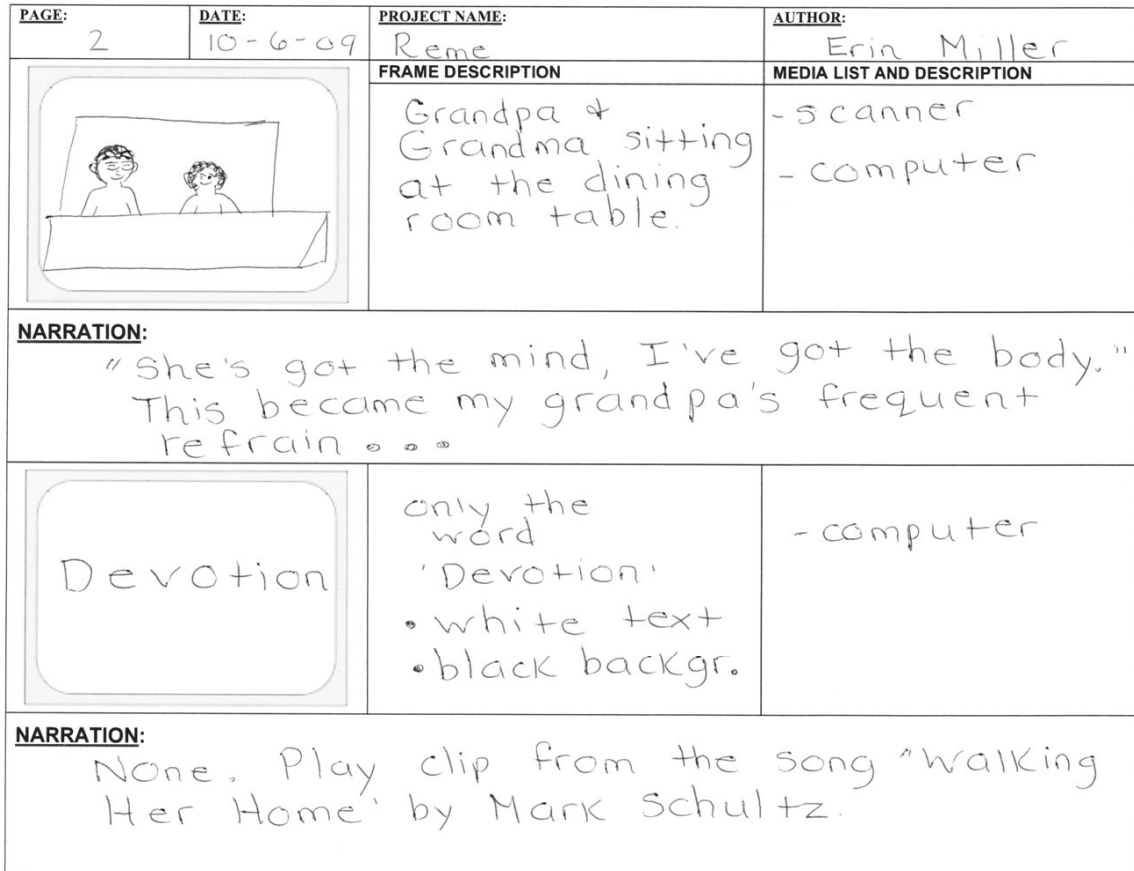 PAGE:
2
DATE:
10-6-09
PROJECT NAME:
Reme
AUTHOR:
Erin Miller
FRAME DESCRIPTION
MEDIA LIST AND DESCRIPTION
Grandpa &
Grandma sitting
at the dining
room table.
- scanner
- computer
NARRATION:
"She's got the mind, I've got the body."
This became my grandpa's frequent
refrain...
Devotion
only the
word
'Devotion'
• white text
• black backgr.
- computer
NARRATION:
None. Play clip from the song "Walking
Her Home' by Mark Schultz.